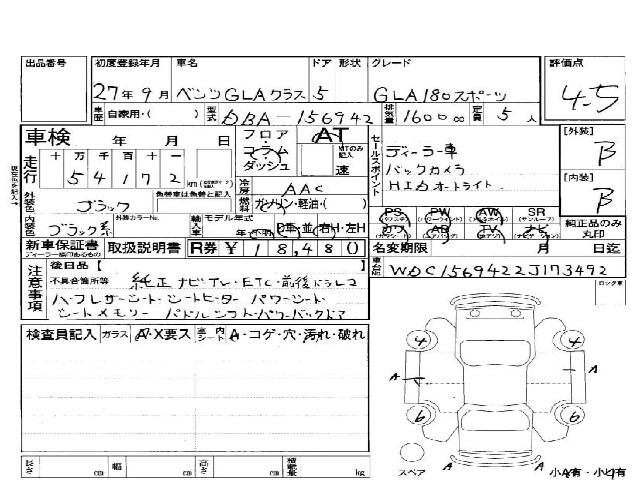 出品番号 初度登録年月 車名 ドア 形状 グレード 評価点
27年9月 ベンツGLAクラス 5 GLA180スポーツ 4.5
車歴 自家用・( ) 型式 DBA-156942 排気量 1600cc 定員 5人
車検 年 月 日 フロア コラム ダッシュ AT MTのみ記入 速 セールスポイント ディーラー車 [外装] B
走行 十 万 千 百 十 一
54172 km
バックカメラ
HID オートライト
[内装] B
外装色 ブラック 色替車は色替と記入 冷房 AAC
内装色 ブラック系 外装カラーNo. 燃料 ガソリン・軽油・( )
輸入車 モデル年式 年 D車・並 右H・左H
PS PW AW SR (サンルーフ)
カワ AB TV ナビ
純正品のみ丸印
新車保証書 取扱説明書 R券 ¥18,480 名変期限 月 日迄
車台No WDC1569422J173492
注意事項 後日品【 】
不具合箇所等 純正ナビ・TV・ETC・前後ドラレコ
ハーフレザーシート シートヒーター パワーシート
シートメモリー パドルシフト・パワーバックドア
ロック車
検査員記入 ガラス A・X要ス 室内シート A・コゲ・穴・汚れ・破れ
4 4
A A
6 6
A
スペア
長さ cm 幅 cm 高さ cm 積載量 kg